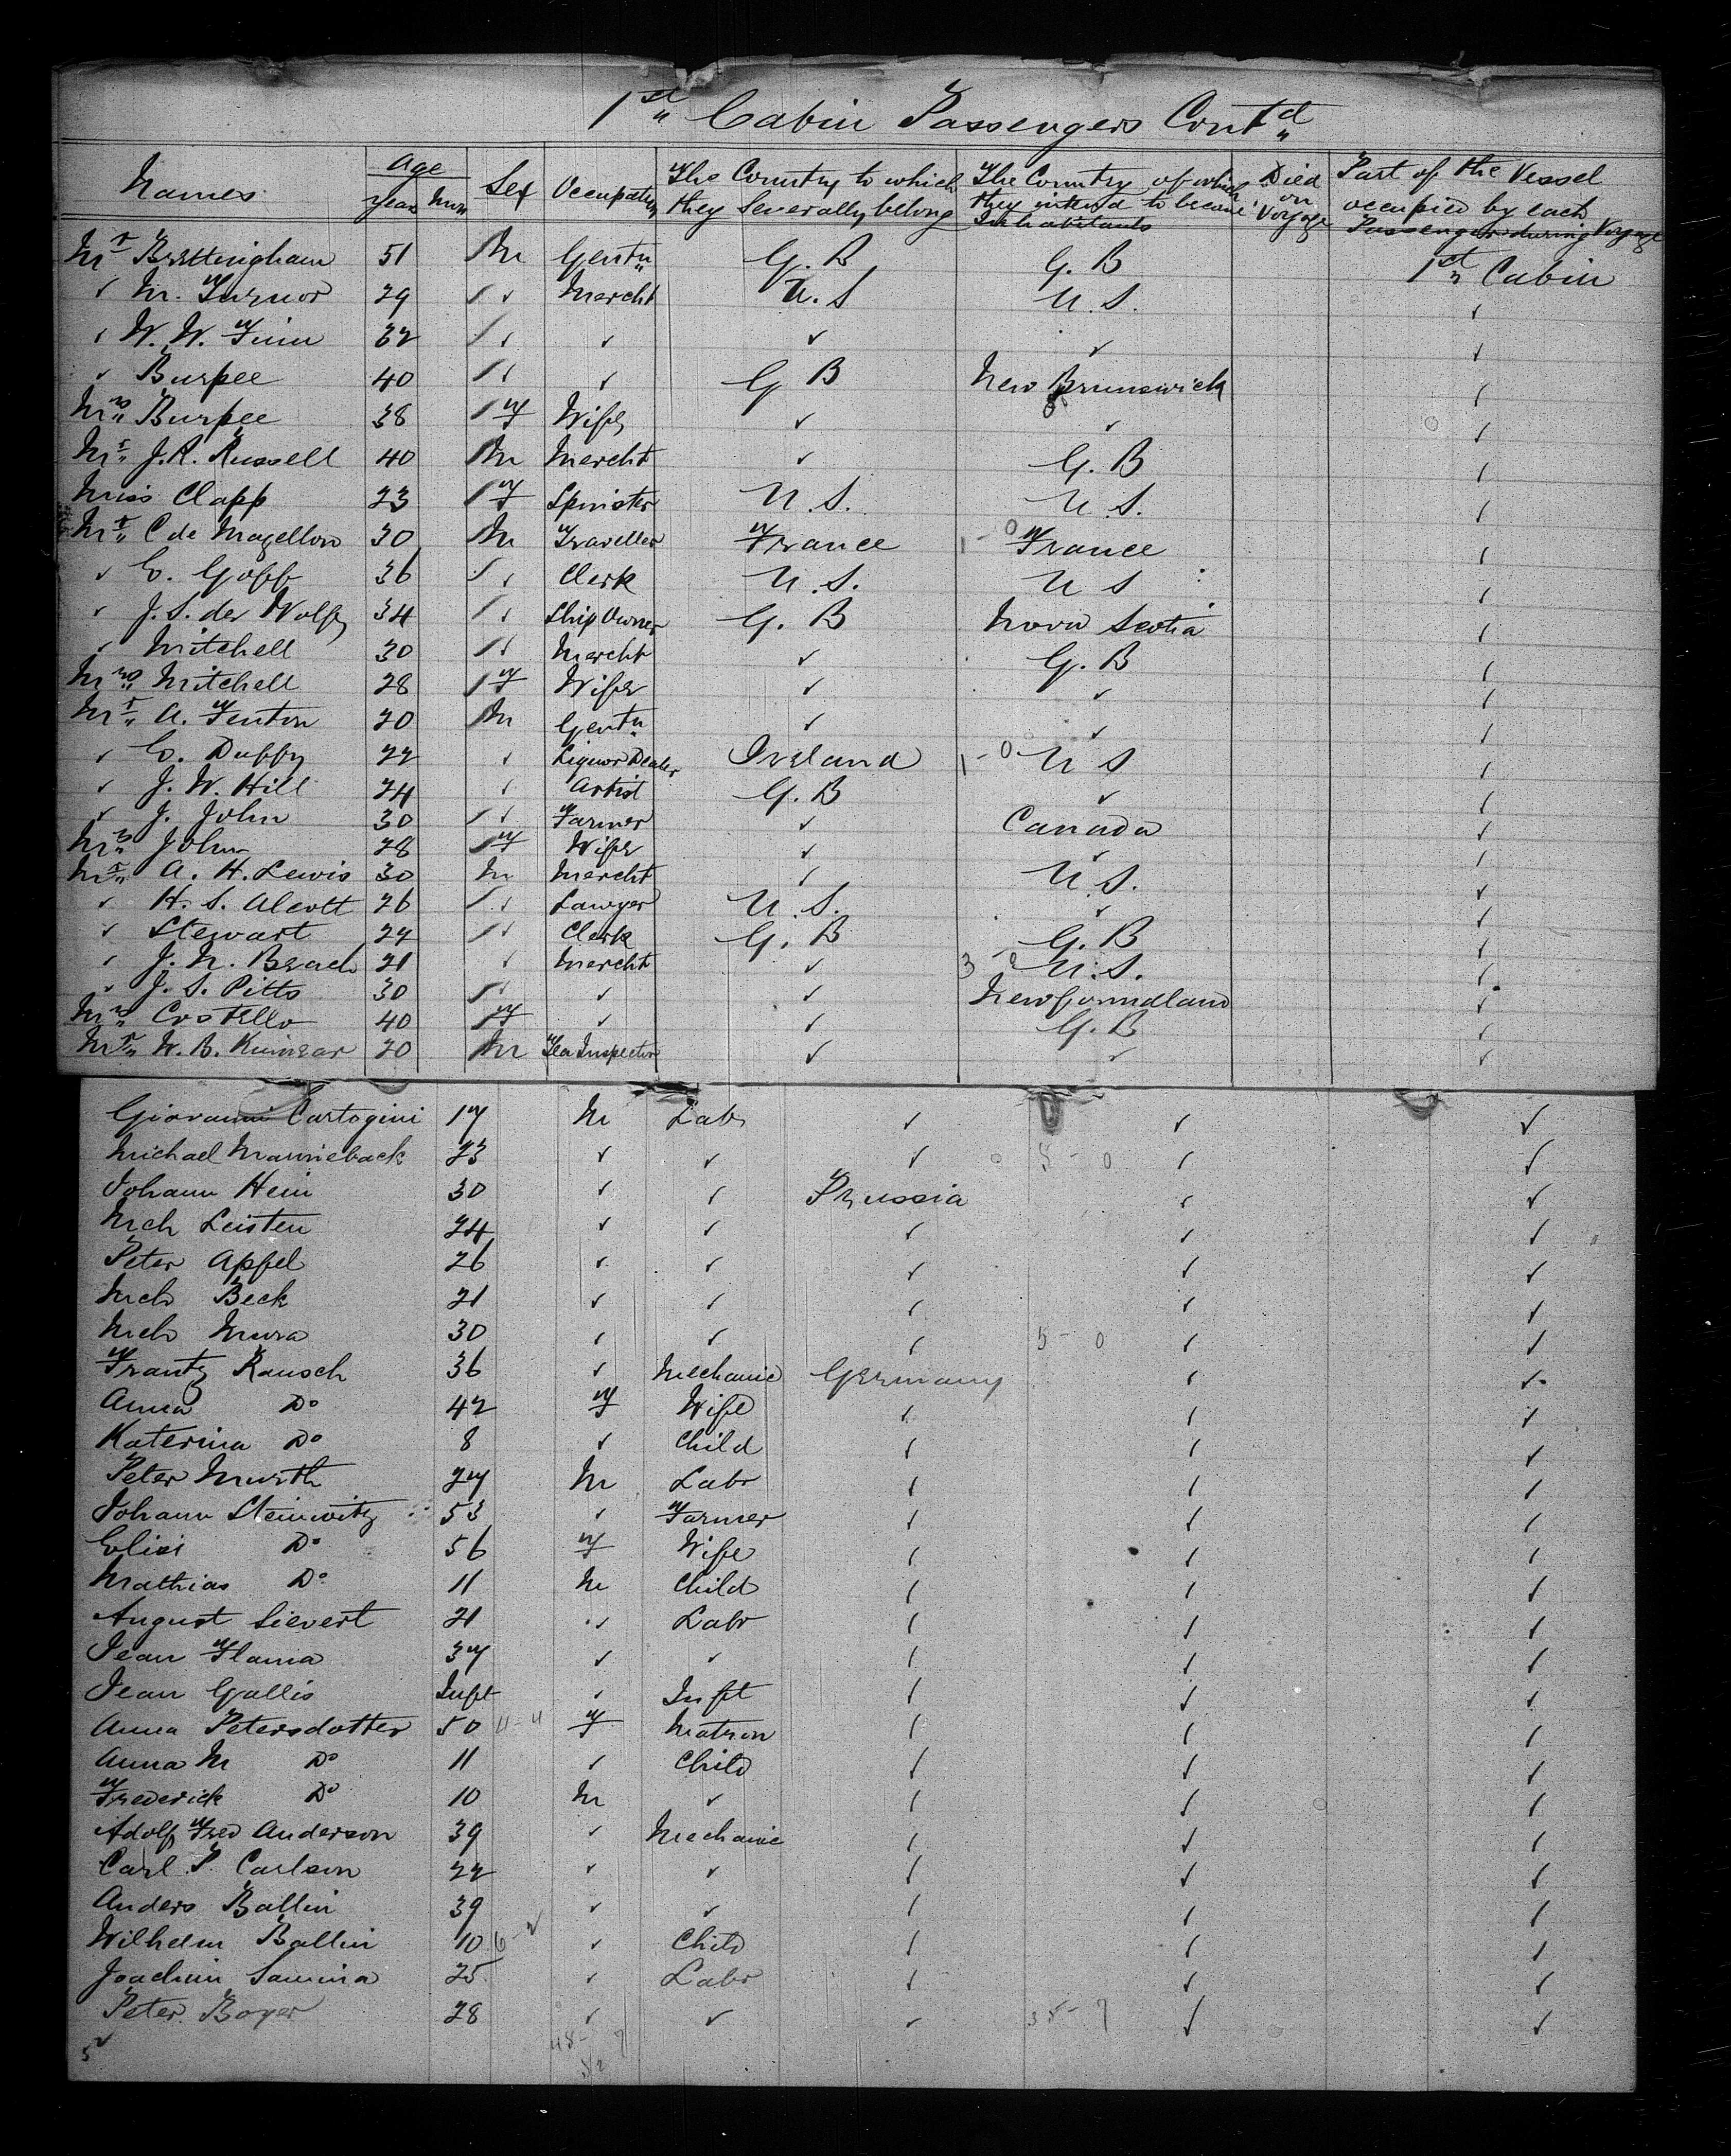 1st Cabin Passengers Contd
Names Age Sex Occupation The Country to which they severally belong The Country of which they intend to become Inhabitants Died on Voyage Part of the Vessel occupied by each Passenger during Voyage
years Mon
Mr Brettingham 51 M Gentn G. B G. B 1st Cabin
✓ M. Turnor 29 ✓ Mercht U. S U. S. ✓
✓ W. W. Finn 32 ✓ ✓ ✓ ✓ ✓
✓ Burpee 40 ✓ ✓ G B New Brunswick ✓
Mrs Burpee 38 F Wife ✓ ✓ ✓
Mr J. R. Russell 40 M Mercht ✓ G. B ✓
Miss Clapp 23 F Spinster U. S. U. S. ✓
Mr C de Magellon 30 M Traveller France 1-0 France ✓
✓ E. Goff 36 ✓ Clerk U. S. U S ✓
✓ J. S. de Wolfe 34 ✓ Ship Owner G. B Nova Scotia ✓
✓ Mitchell 30 ✓ Mercht ✓ G. B ✓
Mrs Mitchell 28 F Wife ✓ ✓ ✓
Mr A. Fenton 20 M Gentn ✓ ✓ ✓
✓ E. Duffy 22 ✓ Liquor Dealer Ireland 1-0 U S ✓
✓ J. W. Hill 24 ✓ Artist G. B ✓ ✓
✓ J. John 30 ✓ Farmer ✓ Canada ✓
Mrs John 28 F Wife ✓ ✓ ✓
Mr A. H. Lewis 30 M Mercht ✓ U. S. ✓
✓ H. S. Alcott 26 ✓ Lawyer U. S. ✓ ✓
✓ Stewart 24 ✓ Clerk G. B G. B ✓
✓ J. N. Beach 21 ✓ Mercht ✓ 3 U. S. ✓
✓ J. S. Pitts 30 ✓ ✓ ✓ Newfoundland ✓
Mrs Costello 40 F ✓ ✓ G. B ✓
Mr W. B. 20 M Tea Inspector ✓ ✓ ✓
Giovanni Cartogini 17 M Labr ✓ ✓ ✓
Michael Manneback 23 ✓ ✓ ✓ 5-0 ✓ ✓
Johann Hein 30 ✓ ✓ Prussia ✓ ✓
Mch Leisten 24 ✓ ✓ ✓ ✓ ✓
Peter Apfel 26 ✓ ✓ ✓ ✓ ✓
Mch Beck 21 ✓ ✓ ✓ ✓ ✓
Mch Mura 30 ✓ ✓ ✓ 5-0 ✓ ✓
Frantz Rausch 36 ✓ Mechanic Germany ✓ ✓
Anna Do 42 F Wife ✓ ✓ ✓
Katerina Do 8 ✓ Child ✓ ✓ ✓
Peter Murth 27 M Labr ✓ ✓ ✓
Johann Steinwitz 53 ✓ Farmer ✓ ✓ ✓
Elisi Do 56 F Wife ✓ ✓ ✓
Mathias Do 11 M Child ✓ ✓ ✓
August Sievert 21 ✓ Labr ✓ ✓ ✓
Jean Flama 37 ✓ ✓ ✓ ✓ ✓
Jean Gallis Inft ✓ Inft ✓ ✓ ✓
Anna Petersdotter 50 4-4 F Matron ✓ ✓ ✓
Anna M Do 11 ✓ Child ✓ ✓ ✓
Frederick Do 10 M ✓ ✓ ✓ ✓
Adolf Fred Anderson 39 ✓ Mechanic ✓ ✓ ✓
Carl P. Carlson 22 ✓ ✓ ✓ ✓ ✓
Anders Ballin 39 ✓ ✓ ✓ ✓ ✓
Wilhelm Ballin 10 6-2 ✓ Child ✓ ✓ ✓
Joachim Samina 25 ✓ Labr ✓ ✓ ✓
Peter Boyer 28 ✓ ✓ ✓ 35-7 ✓ ✓